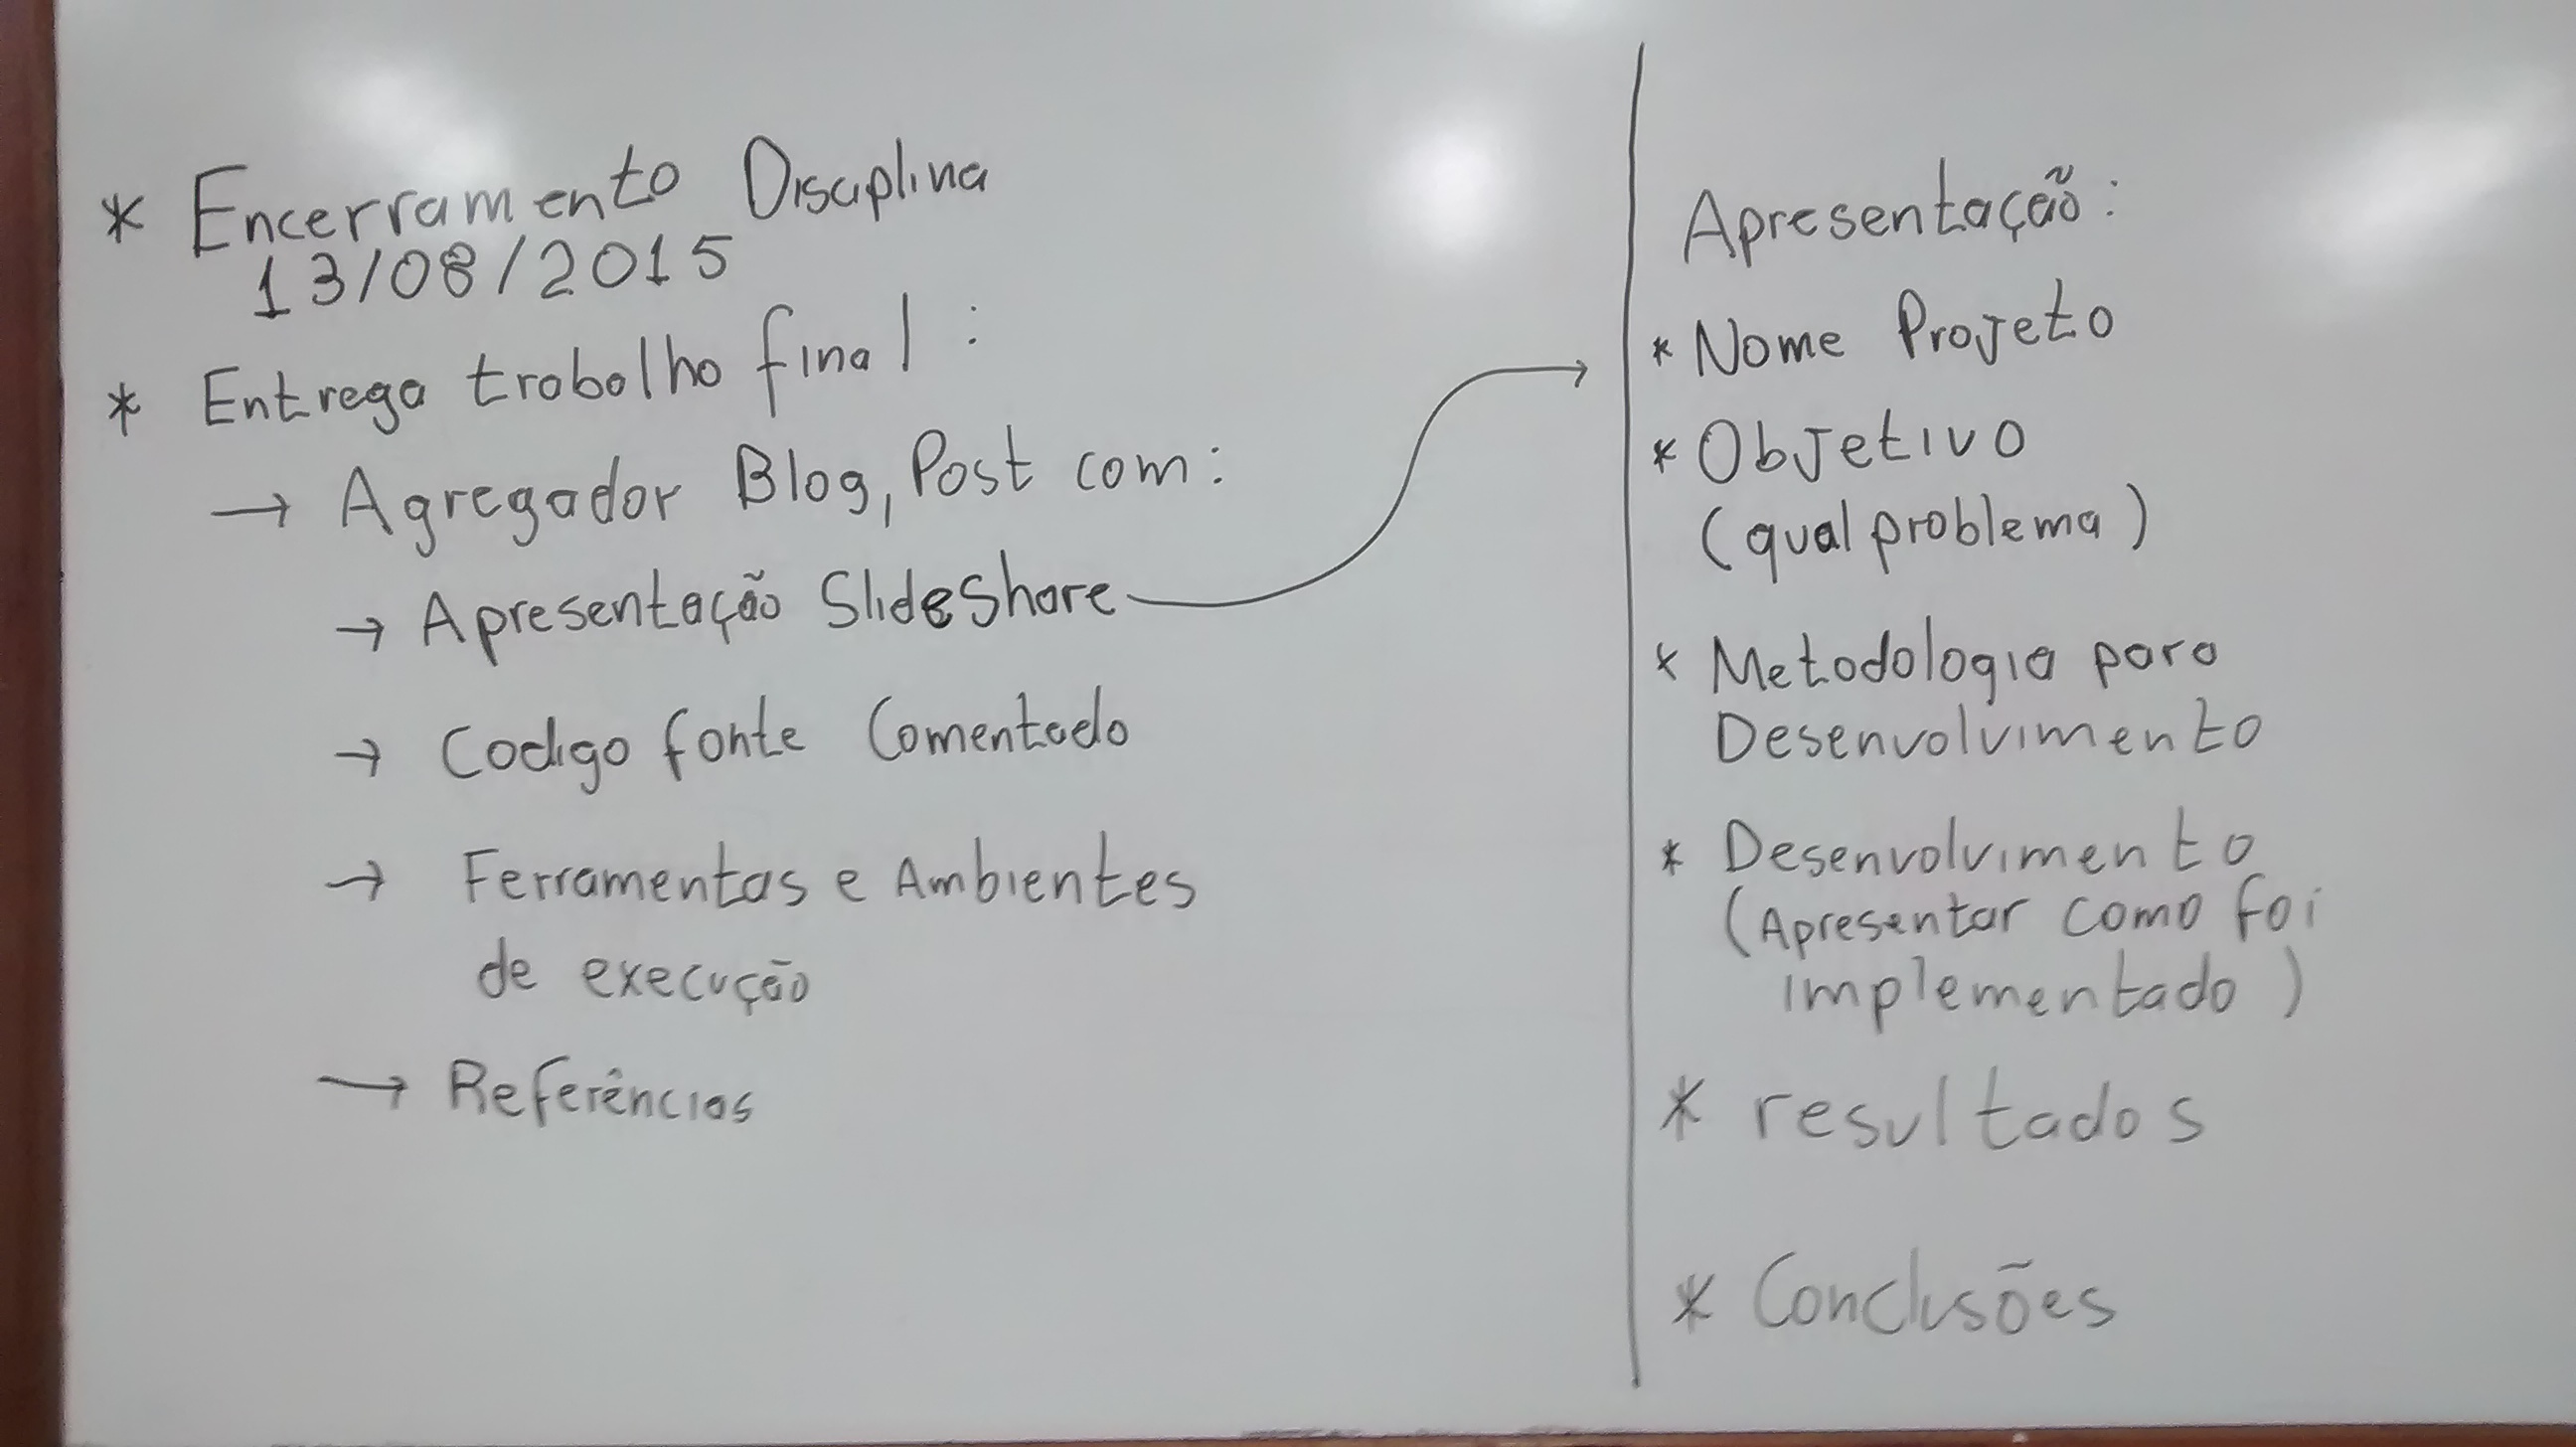 * Encerramento Disciplina
13/08/2015
* Entrega trabalho final :
→ Agregador Blog, Post com:
→ Apresentação SlideShare
→ Codigo fonte Comentado
→ Ferramentas e Ambientes
de execução
→ Referências
Apresentação:
* Nome Projeto
* Objetivo
(qual problema)
* Metodologia para
Desenvolvimento
* Desenvolvimento
(Apresentar como foi
implementado)
* resultados
* Conclusões